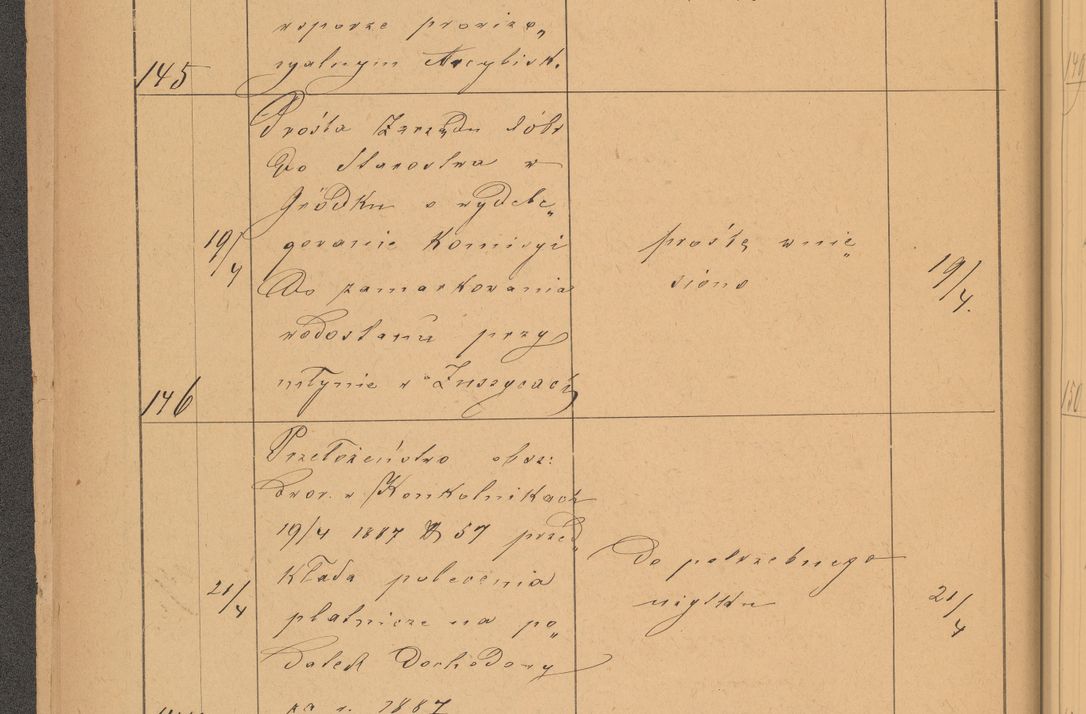 wsporze prowizo„
ryalnym Arcybisk.
145
Prośba Zarządu dóbr
Do Starostwa w
Gródku o wydele„
gowanie Komisyi
19/4
Do zamarkowania
wodostanu przy
młynie w Zuszycach
146
prośbę wnie„
siono
19/4.
Przełożeństwo obsz:
Dwor. w Konkolnikach
19/4 1887 57 przed„
kłada polecenia
21/4
płatnicze na po„
datek Dochodowy
za r. 1887
Do potrzebnego
użytku
21/4
150